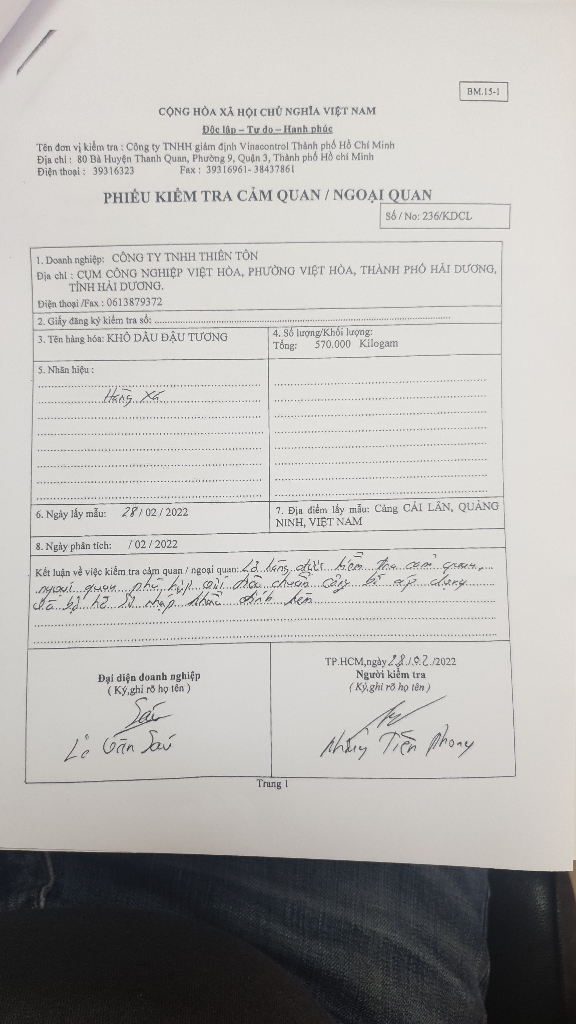 BM.15-1
CỘNG HÒA XÃ HỘI CHỦ NGHĨA VIỆT NAM
Độc lập – Tự do – Hạnh phúc
Tên đơn vị kiểm tra : Công ty TNHH giám định Vinacontrol Thành phố Hồ Chí Minh
Địa chỉ : 80 Bà Huyện Thanh Quan, Phường 9, Quận 3, Thành phố Hồ chí Minh
Điện thoại : 39316323 Fax : 39316961- 38437861
PHIẾU KIỂM TRA CẢM QUAN / NGOẠI QUAN
Số / No: 236/KDCL
1. Doanh nghiệp: CÔNG TY TNHH THIÊN TÔN
Địa chỉ : CỤM CÔNG NGHIỆP VIỆT HÒA, PHƯỜNG VIỆT HÒA, THÀNH PHỐ HẢI DƯƠNG,
TỈNH HẢI DƯƠNG.
Điện thoại /Fax : 0613879372
2. Giấy đăng ký kiểm tra số:
3. Tên hàng hóa: KHÔ DẦU ĐẬU TƯƠNG
4. Số lượng/Khối lượng:
Tổng: 570.000 Kilogam
5. Nhãn hiệu :
Hàng Xá
6. Ngày lấy mẫu: 28 / 02 / 2022
7. Địa điểm lấy mẫu: Cảng CÁI LÂN, QUẢNG
NINH, VIỆT NAM
8. Ngày phân tích: / 02 / 2022
Kết luận về việc kiểm tra cảm quan / ngoại quan: Lô hàng được kiểm tra cảm quan,
ngoại quan phù hợp với tiêu chuẩn công bố áp dụng
và bộ hồ sơ nhập khẩu đính kèm
Đại diện doanh nghiệp
( Ký,ghi rõ họ tên )
Lê Văn Sáu
TP.HCM,ngày 28/02/2022
Người kiểm tra
( Ký,ghi rõ họ tên )
Tiến Phong
Trang 1